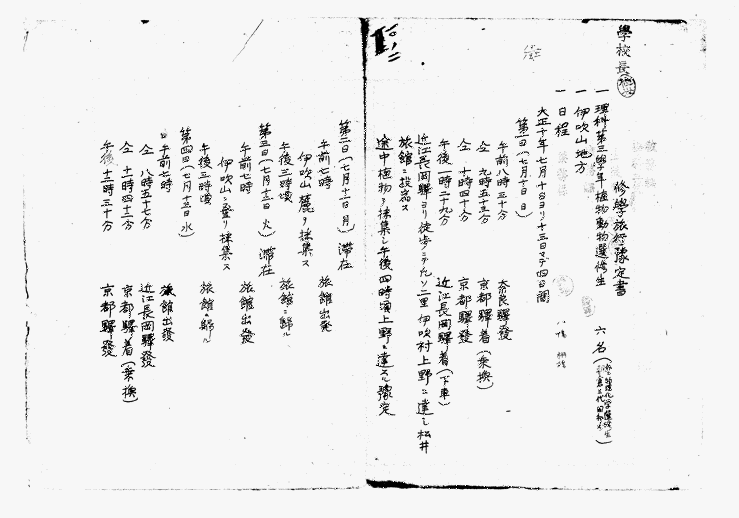 學校長
修學旅行豫定書
一 理科第三學年植物動物選修生 六名
一 伊吹山地方
一 日程
大正十年七月十日ヨリ十三日マデ四日間
第一日(七月十日 日)
午前八時三十分 奈良驛發
仝 九時五十五分 京都驛着(乗換)
仝 十時四十分 京都驛發
午後一時二十九分 近江長岡驛着(下車)
近江長岡驛ヨリ徒歩ニテ凡ソ二里伊吹村上野ニ達シ松井
旅館ニ投宿ス
途中植物ヲ採集シ午後四時頃上野ニ達スル豫定
第二日(七月十一日 月) 滞在
午前七時 旅館出發
伊吹山麓ヲ採集ス
午後三時頃 旅館ニ歸ル
第三日(七月十二日 火) 滞在
午前七時 旅館出發
伊吹山ニ登リ採集ス
午後三時頃 旅館ニ歸ル
第四日(七月十三日 水)
午前七時 旅館出發
仝 八時五十七分 近江長岡驛發
仝 十一時四十三分 京都驛着(乗換)
午後 十二時三十分 京都驛發